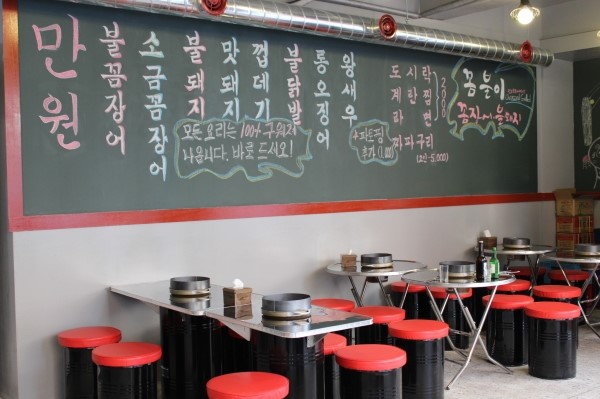 만원
불꼼장어
소금꼼장어
불돼지
맛돼지
껍데기
불닭발
통오징어
왕새우
모든 요리는 100% 구워져
나옵니다. 바로 드세요!
+파트핑
추가 (1,000)
도시락
계란찜
라면
2000
짜파구리
(2인-5,000)
꼼불이
꼼장어.불돼지